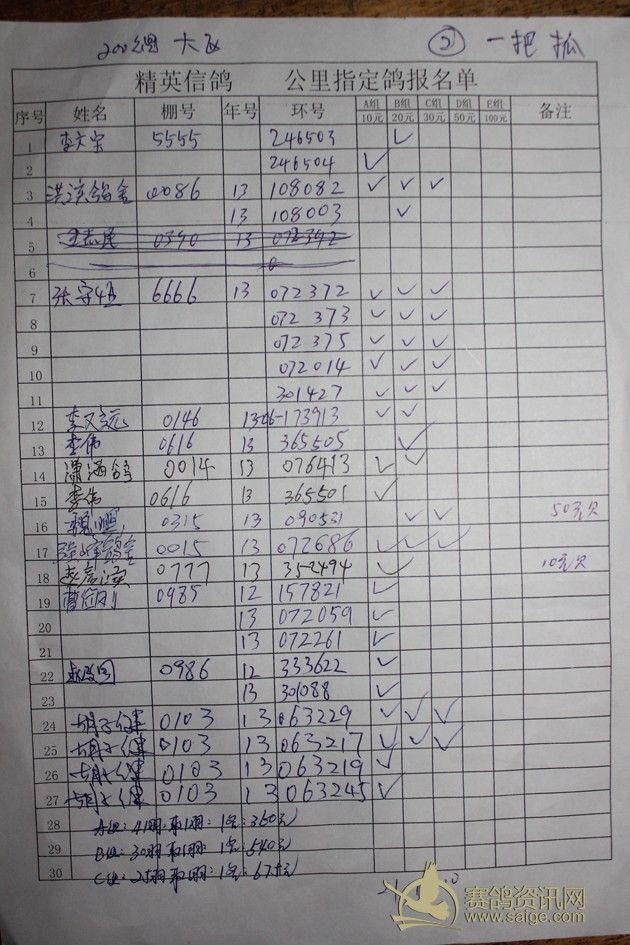 ② 一把抓
精英信鸽 公里指定鸽报名单
序号 姓名 棚号 年号 环号 A组10元 B组20元 C组30元 D组50元 E组100元 备注
1 5555 246503 ✓
2 246504 ✓
3 0086 13 108082 ✓ ✓ ✓
4 13 108003 ✓
5 0390 13 072342
6
7 6666 13 072372 ✓ ✓ ✓
8 072373 ✓ ✓ ✓
9 072375 ✓ ✓ ✓
10 072014 ✓ ✓ ✓
11 301427 ✓ ✓ ✓
12 0146 1306-173913 ✓ ✓
13 李伟 0616 13 365505 ✓
14 潇洒鸽 0014 13 076413 ✓ ✓
15 李伟 0616 13 365501 ✓
16 0315 13 090531 ✓ ✓ 50元欠
17 0015 13 072686 ✓ ✓ ✓
18 0777 13 352494 ✓ 10元欠
19 0985 12 157821 ✓
20 13 072059 ✓
21 13 072261 ✓
22 0986 12 333622 ✓
23 13 301088 ✓
24 胡子健 0103 13 063229 ✓ ✓ ✓
25 胡子健 0103 13 063217 ✓ ✓ ✓
26 胡子健 0103 13 063219 ✓
27 胡子健 0103 13 063245 ✓
28 A组:41羽取1羽:1名:360元
29 B组:30羽取1羽:1名:540元
30 C组:25羽取1羽:1名:675元
赛鸽资讯网
www.saige.com